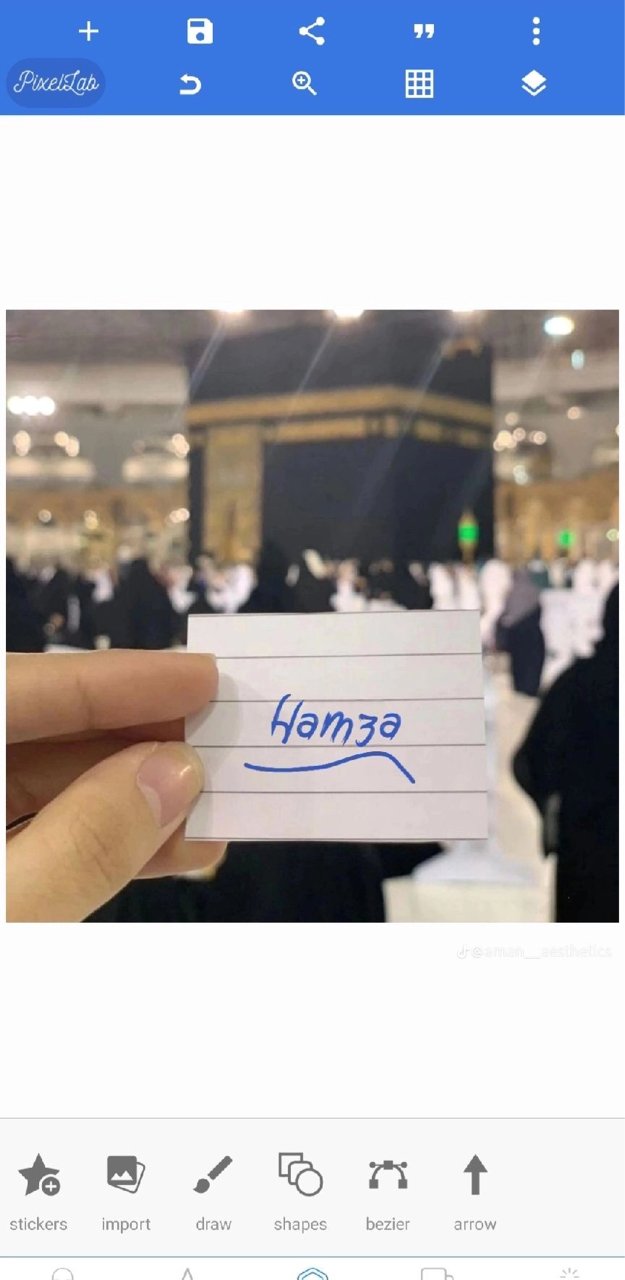 PixelLab
Hamza
@aman__aesthetics
stickers
import
draw
shapes
bezier
arrow